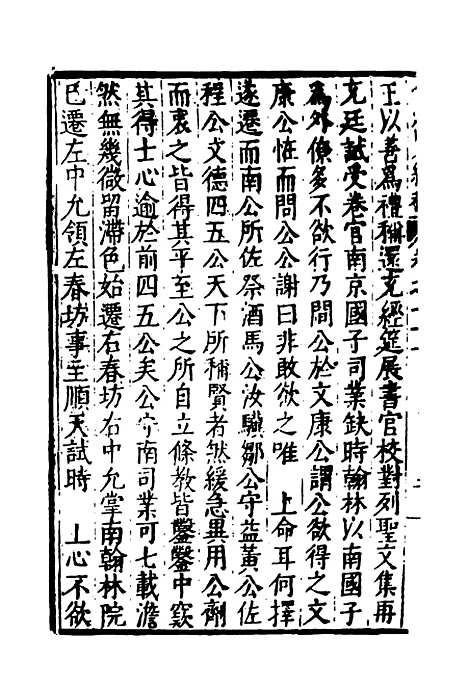 王以善爲禮稱還充經筵展書官校對列聖文集再
充廷試受卷官南京國子司業缺時翰林以南國子
爲外僚多不欲行乃間公於文康公謂公欲得之文
康公恠而問公公謝曰非敢欲之唯　上命耳何擇
遂遷而南公所佐祭酒馬公汝驥鄒公守益黃公佐
程公文德四五公天下所稱賢者然緩急異用公劑
而衷之皆得其平至公之所自立條教皆鑿鑿中窾
其得士心逾於前四五公矣公守南司業可七載澹
然無幾微留滯色始遷右春坊右中允掌南翰林院
已遷左中允領左春坊事主順天試時　上心不欲